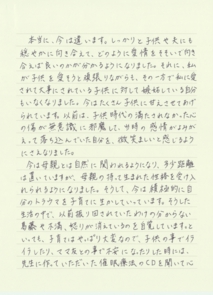 本当に、今は違います。しっかりと子供や夫にも
穏やかに向き合えて、どのように愛情をそそいで向き
合えば良いのかが分かるようになりました。それに、私
が子供を愛そうと頑張りながらも、その一方で私に愛
されて大事にされている子供に対して嫉妬している自分
もいなくなりました。今はたくさん子供に甘えさせてあげ
られています。以前は、子供時代の満たされなかった心
の傷が無意識に邪魔して、当時の感情がよみがえ
って落ち込んでいた自分を、微笑ましいと感じるよう
にさえなりました。
今は母親とは自然に関われるようになり、まだ距離
は置いていますが、母親の持って生まれた性格を受け入
れられるようになりました。そうして、今は積極的に自
分のトラウマを子育てに生かしていっています。そうした
生活の中で、以前振り回されていたわけの分からない
葛藤や不満、怒りが消えているのを自覚しています。と
いっても、子育てはやっぱり大変なので、子供の事でイラ
イラしたり、ママ友との事で不安になったりした時には、
先生に作っていただいた催眠療法のCDを聞いて心